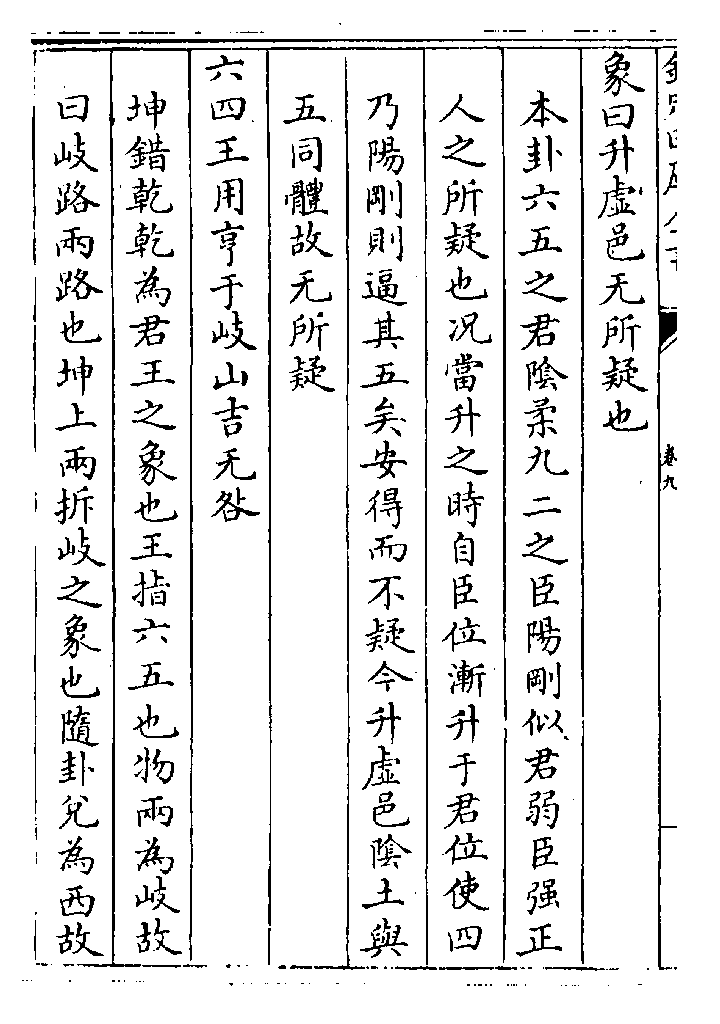 象曰升虛邑无所疑也
本卦六五之君陰柔九二之臣陽剛似君弱臣强正
人之所疑也况當升之時自臣位漸升于君位使四
乃陽剛則逼其五矣安得而不疑今升虛邑陰土與
五同體故无所疑
六四王用亨于岐山吉无咎
坤錯乾乾為君王之象也王指六五也物兩為岐故
曰岐路兩路也坤上兩拆岐之象也隨卦兌為西故
卷九